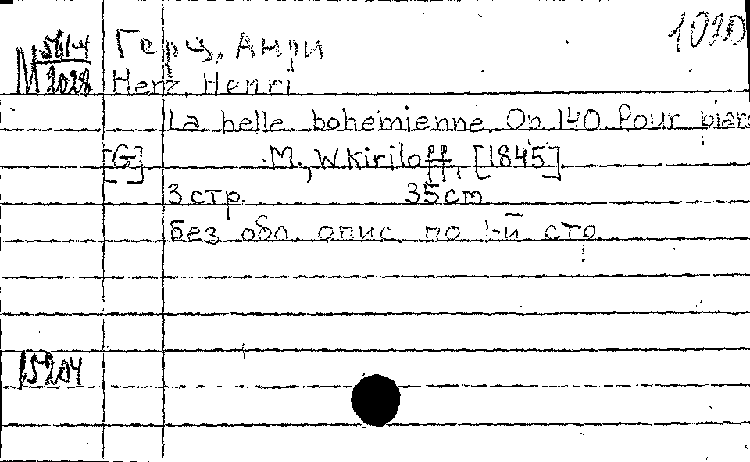 1020
М 2028
Герц, Анри
Herz, Henri
La belle bohemienne. Op. 140 Pour piano
[G] M., W. Kiriloff, [1845]
3 стр. 35 cm
Без обл. опис. по 1-й стр.
15204